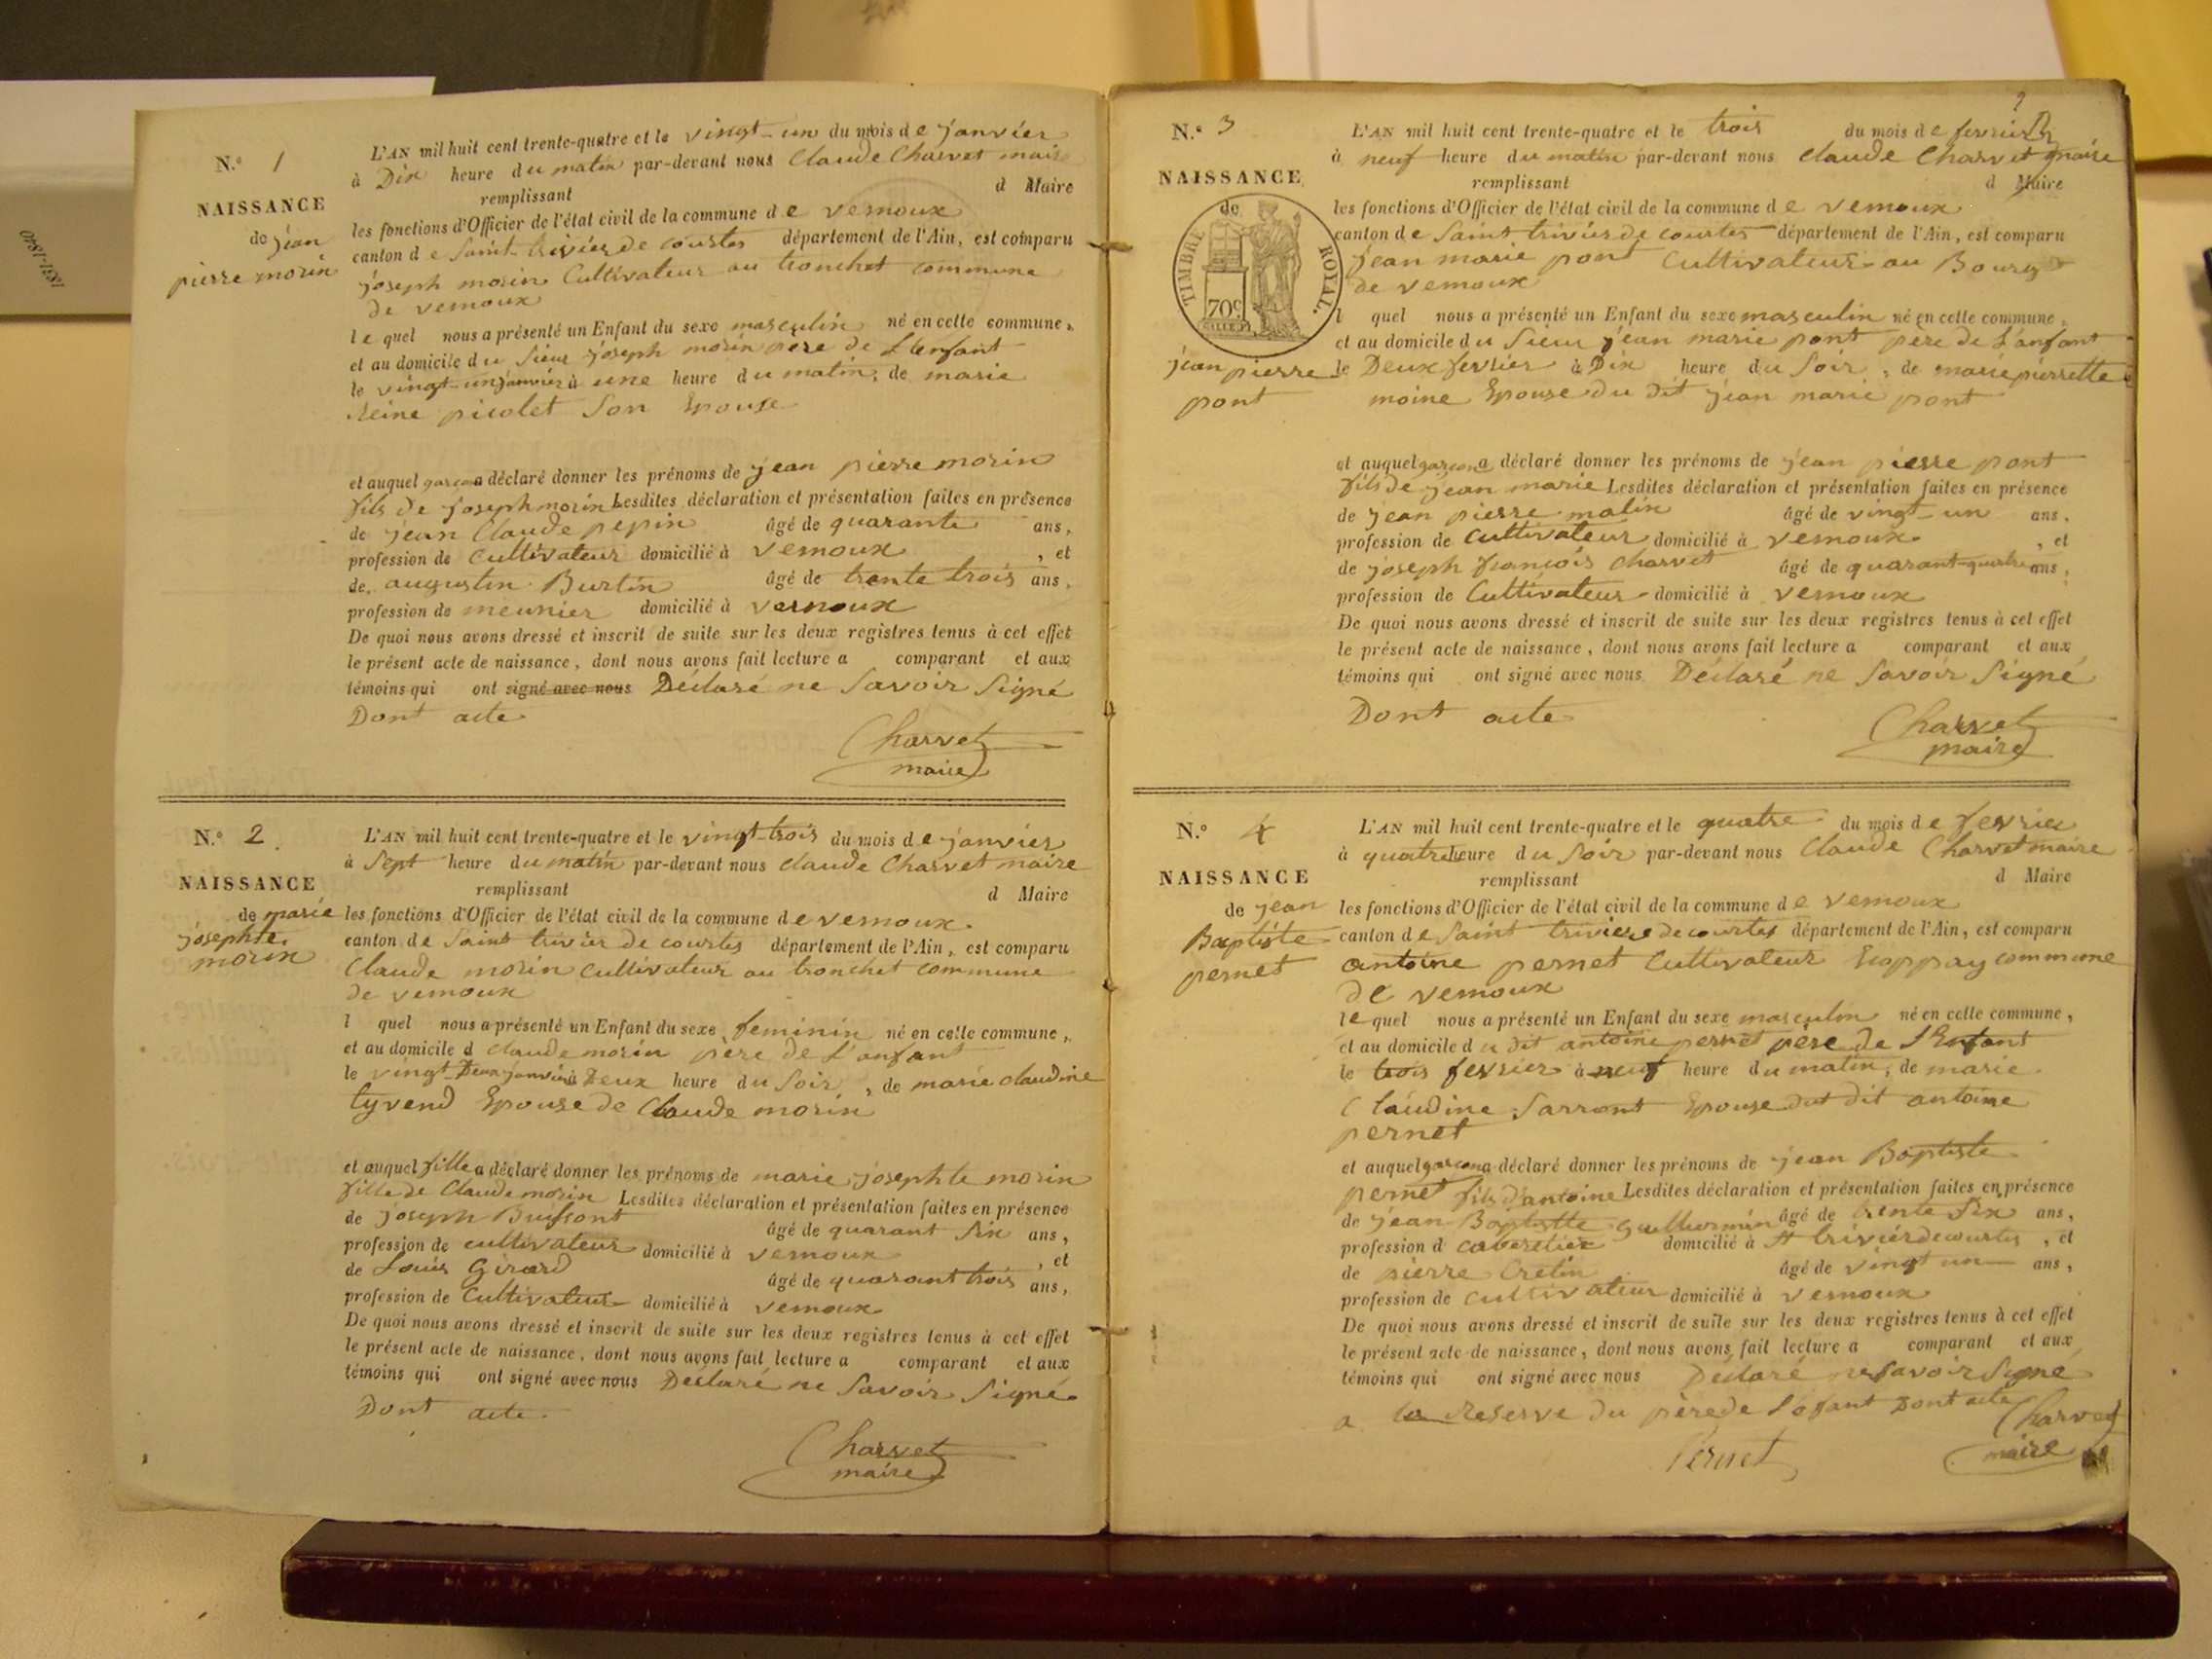 1831-1840
N.º 1
NAISSANCE
de jean
pierre morin
L'AN mil huit cent trente-quatre et le vingt-un du mois de janvier
à Dix heure du matin par-devant nous Claude Charvet maire
remplissant d Maire
les fonctions d'Officier de l'état civil de la commune de vernoux
canton de Saint-trivier de courtes département de l'Ain, est comparu
joseph morin Cultivateur au tronchet commune
de vernoux
lequel nous a présenté un Enfant du sexe masculin né en cette commune,
et au domicile du Sieur joseph morin pere de L'enfant
le vingt-un janvier à une heure du matin, de marie
Reine picolet Son Epouse
et auquel garcon a déclaré donner les prénoms de jean pierre morin
fils de joseph morin Lesdites déclaration et présentation faites en présence
de jean Claude pepin âgé de quarante ans,
profession de Cultivateur domicilié à vernoux, et
de augustin Burtin âgé de trente trois ans,
profession de meunier domicilié à vernoux
De quoi nous avons dressé et inscrit de suite sur les deux registres tenus à cet effet
le présent acte de naissance, dont nous avons fait lecture a comparant et aux
témoins qui ont signé avec nous Déclaré ne Savoir Signé
Dont acte
Charvet
maire
N.º 2
NAISSANCE
de marie
josephte
morin
L'AN mil huit cent trente-quatre et le vingt-trois du mois de janvier
à Sept heure du matin par-devant nous claude Charvet maire
remplissant d Maire
les fonctions d'Officier de l'état civil de la commune de vernoux
canton de Saint trivier de courtes département de l'Ain, est comparu
Claude morin Cultivateur au tronchet commune
de vernoux
l quel nous a présenté un Enfant du sexe feminin né en cette commune,
et au domicile d claude morin père de L'anfant
le vingt-Deux janvier à Deux heure du Soir, de marie claudine
tyvend Epouse de Claude morin
et auquel fille a déclaré donner les prénoms de marie josephte morin
fille de Claude morin Lesdites déclaration et présentation faites en présence
de joseph Buissont âgé de quarant Six ans,
profession de cultivateur domicilié à vernoux, et
de Louis Girard âgé de quarant trois ans,
profession de Cultivateur domicilié à vernoux
De quoi nous avons dressé et inscrit de suite sur les deux registres tenus à cet effet
le présent acte de naissance, dont nous avons fait lecture a comparant et aux
témoins qui ont signé avec nous Déclaré ne Savoir Signé
Dont acte
Charvet
maire
2
N.º 3
NAISSANCE
de
TIMBRE ROYAL.
70c
jean pierre
pont
L'AN mil huit cent trente-quatre et le trois du mois de fevrier
à neuf heure du matin par-devant nous claude Charvet maire
remplissant d Maire
les fonctions d'Officier de l'état civil de la commune de vernoux
canton de Saint trivier de courtes département de l'Ain, est comparu
jean marie pont Cultivateur au Bourg
de vernoux
l quel nous a présenté un Enfant du sexe masculin né en cette commune,
et au domicile du Sieur jean marie pont père de L'anfant
le Deux fevrier à Dix heure du Soir, de marie pierrette
moine Epouse du dit jean marie pont
et auquel garcon a déclaré donner les prénoms de jean pierre pont
fils de jean marie Lesdites déclaration et présentation faites en présence
de jean pierre matin âgé de vingt-un ans,
profession de Cultivateur domicilié à vernoux, et
de joseph francois Charvet âgé de quarant-quatre ans,
profession de Cultivateur domicilié à vernoux
De quoi nous avons dressé et inscrit de suite sur les deux registres tenus à cet effet
le présent acte de naissance, dont nous avons fait lecture a comparant et aux
témoins qui ont signé avec nous Déclaré ne Savoir Signé
Dont acte
Charvet
maire
N.º 4
NAISSANCE
de jean
Baptiste
pernet
L'AN mil huit cent trente-quatre et le quatre du mois de fevrier
à quatre heure du Soir par-devant nous Claude Charvet maire
remplissant d Maire
les fonctions d'Officier de l'état civil de la commune de vernoux
canton de Saint triviere de courtes département de l'Ain, est comparu
antoine pernet Cultivateur Ecoppay commune
de vernoux
lequel nous a présenté un Enfant du sexe masculin né en cette commune,
et au domicile du dit antoine pernet père de l'Enfant
le trois fevrier à neuf heure du matin, de marie
Claudine Sarront Epouse du dit antoine
pernet
et auquel garcon a déclaré donner les prénoms de jean Baptiste
pernet fils d'antoine Lesdites déclaration et présentation faites en présence
de jean Baptistte guillermin âgé de trente Six ans,
profession d cabaretier domicilié à St trivier de courtes, et
de pierre Cretin âgé de vingt un ans,
profession de Cultivateur domicilié à vernoux
De quoi nous avons dressé et inscrit de suite sur les deux registres tenus à cet effet
le présent acte de naissance, dont nous avons fait lecture a comparant et aux
témoins qui ont signé avec nous Déclaré ne Savoir Signé
a la Reserve du père de l'efant Dont acte Charvet
Pernet maire